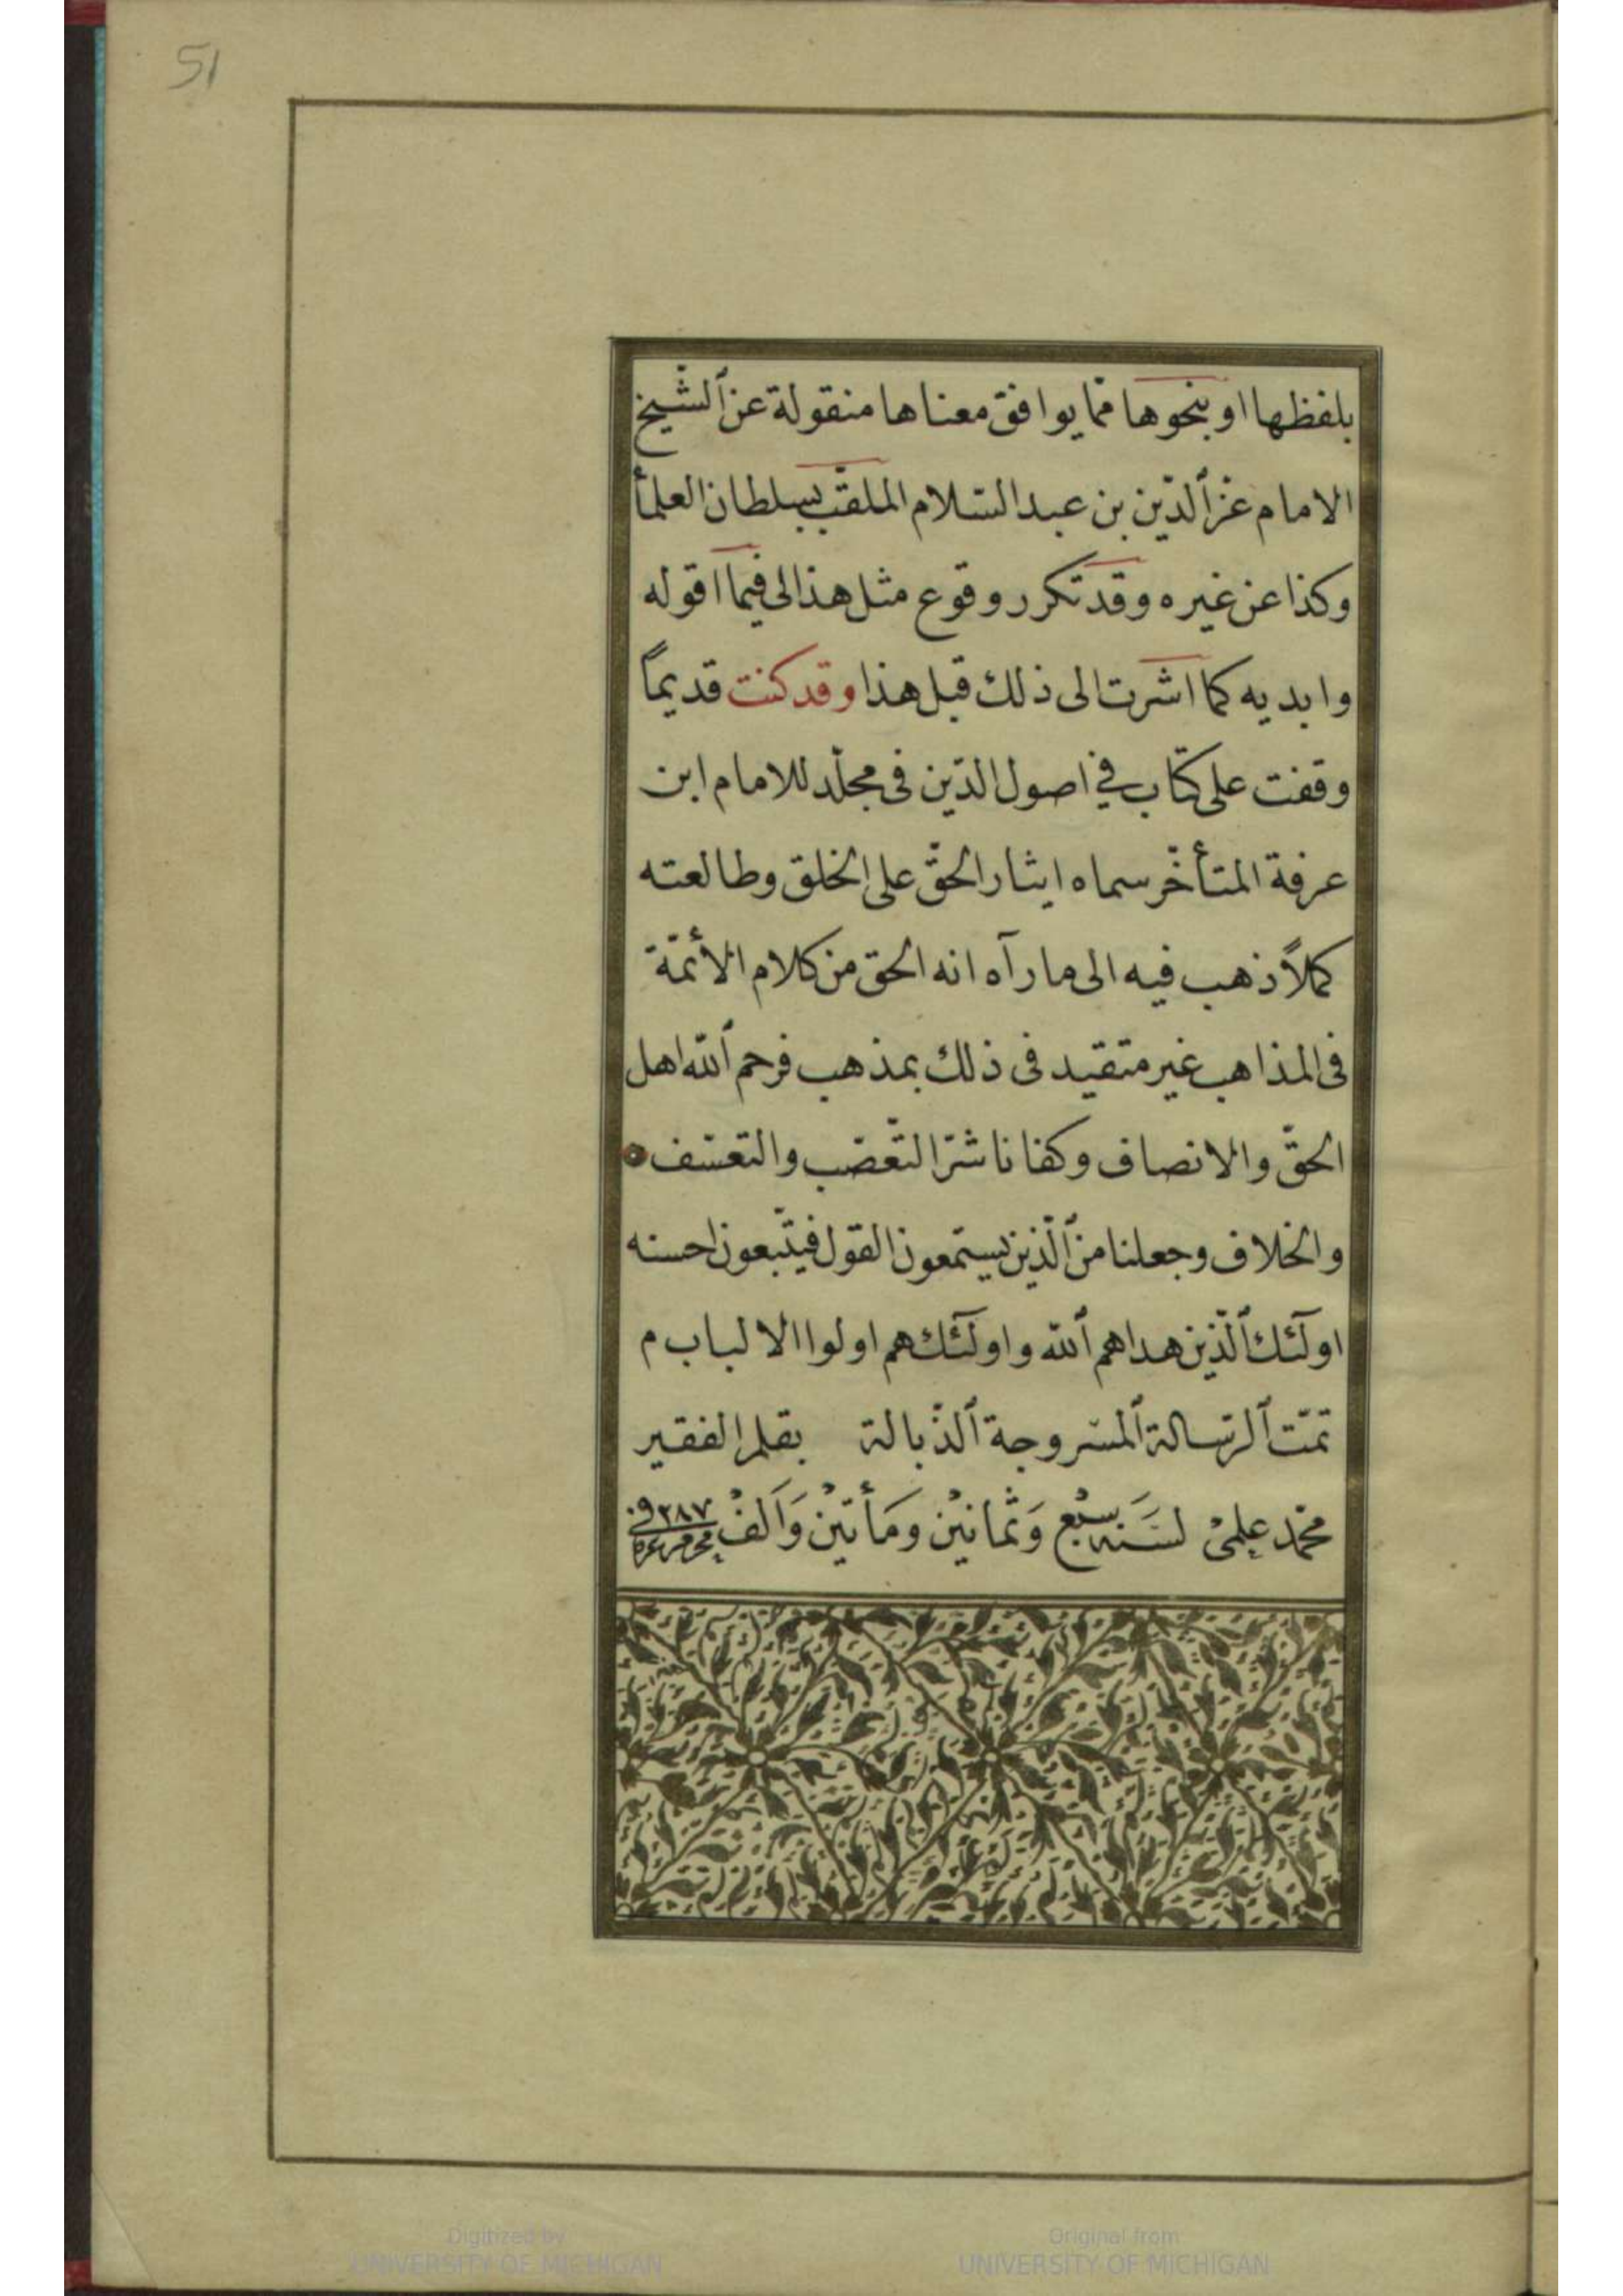 51
بلفظها او بنحوها ممّا يوافق معناها منقولة عن ٱلشّيخ
الامام عزّ ٱلدّين بن عبد السّلام الملقّب بسلطان العلمأ
وكذا عن غيره وقد تكرر وقوع مثل هذا لى فيما اقوله
وابديه كما اشرت الى ذلك قبل هذا وقد كنت قديماً
وقفت على كتاب في اصول الدّين فى مجلّد للامام ابن
عرفة المتأخّر سماه ايثار الحقّ على الخلق وطالعته
كملاً ذهب فيه الى ما رآه انه الحق من كلام الأئمّة
فى المذاهب غير متقيد فى ذلك بمذهب فرحم ٱللّه اهل
الحقّ والانصاف وكفانا شرّ التّعصّب والتعسّف
والخلاف وجعلنا من ٱلّذين يستمعون القول فيتّبعون احسنه
اولٓئك ٱلّذين هداهم ٱللّه واولٓئك هم اولوا الالباب م
تمّت ٱلرّسالة ٱلمسّروجة ٱلذّبالة بقلم الفقير
محمّد علمىْ لسَنَه سبْع وَثمانيْن ومَأتيْن وَاَلفْ
Digitized by
UNIVERSITY OF MICHIGAN
Original from
UNIVERSITY OF MICHIGAN